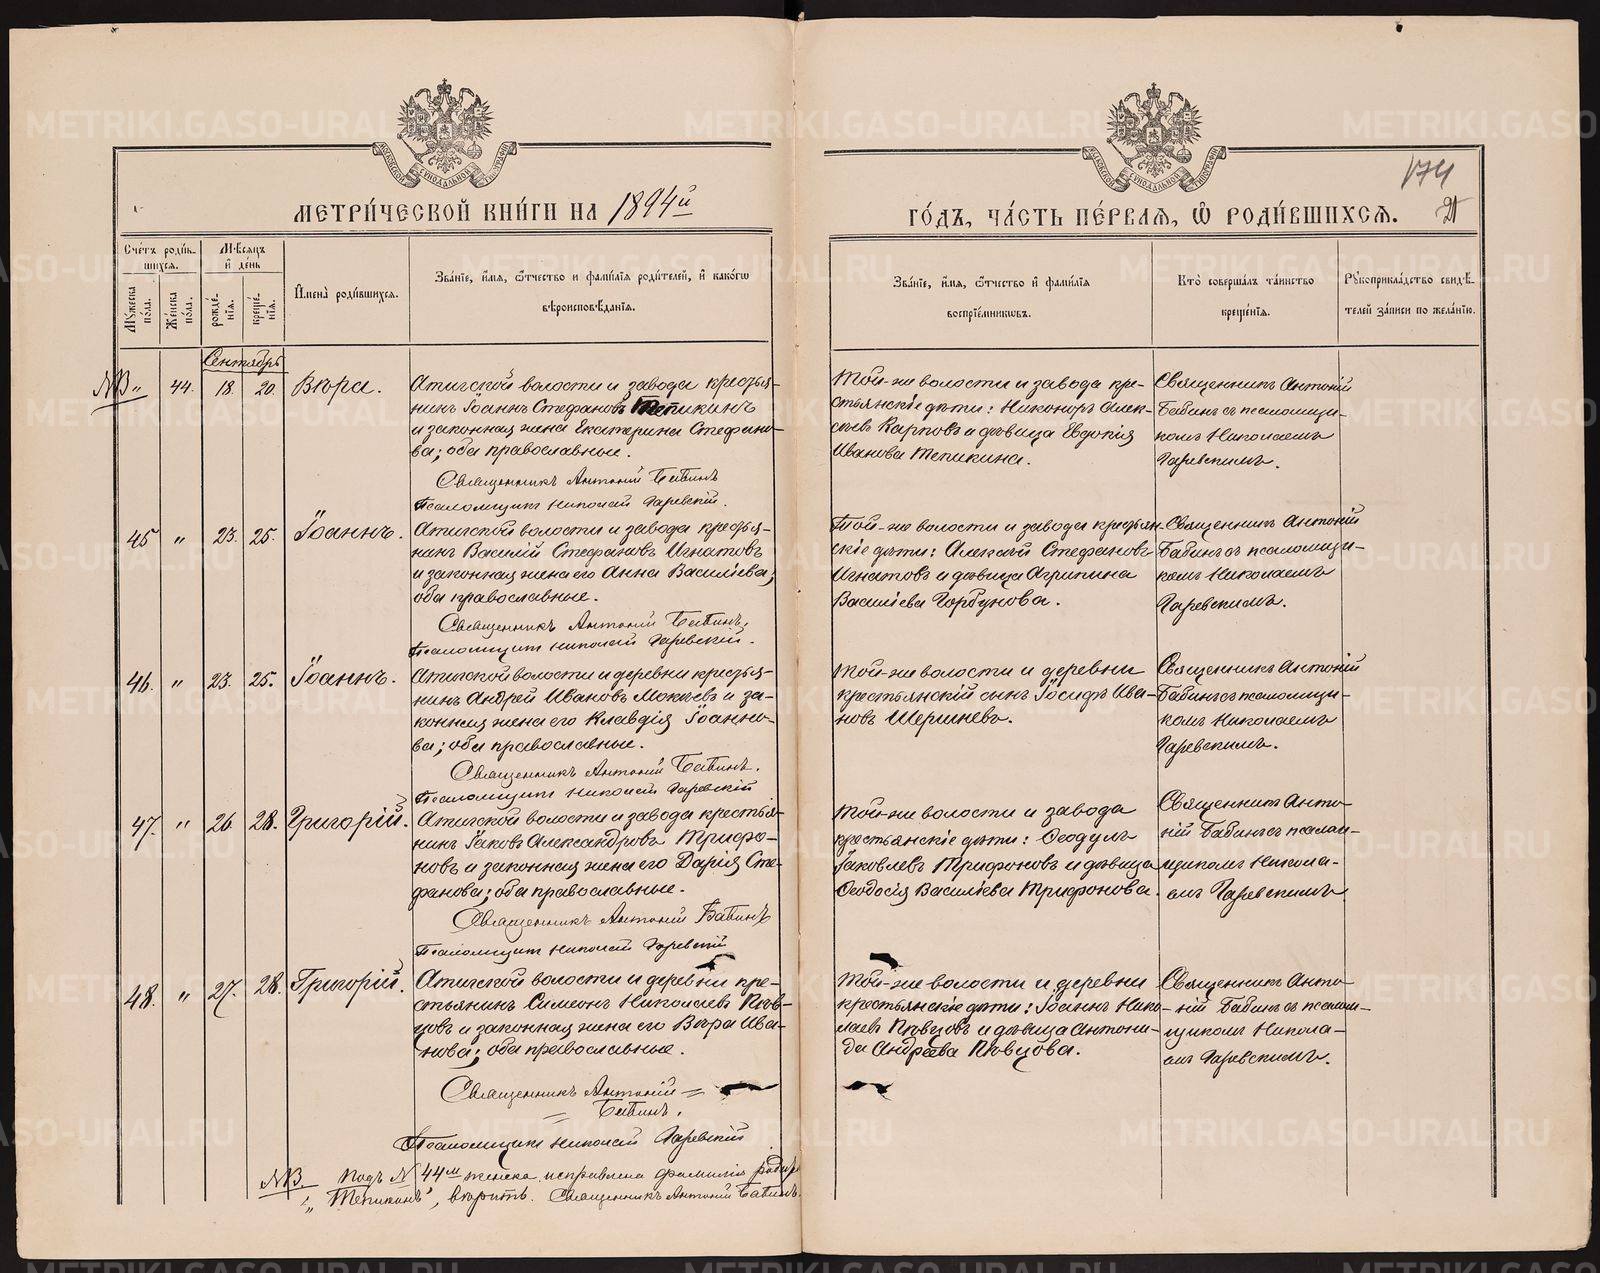 174
21
МЕТРИ́ЧЕСКОЙ КНИ́ГИ НА 1894й
ГО́ДЪ, ЧА́СТЬ ПЕ́РВАѦ, Ѽ РОДИ́ВШИХСѦ.
Сче́тъ роди́в-
шихся.
Мѣсяцъ
и҆ де́нь
Мꙋжеска по́ла.
Же́нска по́ла.
рожде́-
нїя.
креще́-
нїя.
И҆мена̀ роди́вшихся.
Зва́нїе, и҆́мя, ѻ҆́тчество и фами́лїя роди́телей, и҆ како́гѡ
вѣроисповѣ́данїя.
Зва́нїе, и҆́мя, ѻ҆́тчество и҆ фами́лїя
воспрїе́мникѡвъ.
Кто̀ соверша́лъ та́инство
креще́нїя.
Рꙋкоприкла́дство свидѣ́-
телей за́писи по жела́нїю.
Сентябрь
NB " 44. 18. 20. Вѣра.
Атигской волости и завода крестья-
нинъ Іоаннъ Стефановъ Тепикинъ
и законная жена Екатерина Стефано-
ва; оба православные.
Священникъ Антоній Бабинъ
Псаломщикъ Николай Гаревскій.
Той-же волости и завода кре-
стьянскіе дѣти: Никоноръ Алек-
сѣевъ Карповъ и дѣвица Евдокія
Иванова Тепикина.
Священникъ Антоній
Бабинъ съ псаломщи-
комъ Николаемъ
Гаревскимъ.
45 " 23. 25. Іоаннъ.
Атигской волости и завода крестья-
нинъ Василій Стефановъ Игнатовъ
и законная жена его Анна Васильева;
оба православные.
Священникъ Антоній Бабинъ.
Псаломщикъ Николай Гаревскій.
Той-же волости и завода крестьян-
скіе дѣти: Алексѣй Стефановъ
Игнатовъ и дѣвица Агрипина
Васильева Горбунова.
Священникъ Антоній
Бабинъ съ псаломщи-
комъ Николаемъ
Гаревскимъ.
46. " 23. 25. Іоаннъ.
Атигской волости и деревни крестья-
нинъ Андрей Ивановъ Мокѣевъ и за-
конная жена его Клавдія Іоанно-
ва; оба православные.
Священникъ Антоній Бабинъ.
Псаломщикъ Николай Гаревскій
Той-же волости и деревни
крестьянскій сынъ Іосифъ Ива-
новъ Шершневъ.
Священникъ Антоній
Бабинъ съ псаломщи-
комъ Николаемъ
Гаревскимъ.
47. " 26. 28. Григорій.
Атигской волости и завода крестья-
нинъ Іаковъ Александровъ Трифо-
новъ и законная жена его Дарія Сте-
фанова; оба православные.
Священникъ Антоній Бабинъ
Псаломщикъ Николай Гаревскій
Той-же волости и завода
крестьянскіе дѣти: Ѳеодулъ
Іаковлевъ Трифоновъ и дѣвица
Ѳеодосія Васильева Трифонова.
Священникъ Анто-
ній Бабинъ съ псалом-
щикомъ Никола-
емъ Гаревскимъ
48. " 27. 28. Григорій.
Атигской волости и деревни кре-
стьянинъ Симеонъ Николаевъ Пѣв-
цовъ и законная жена его Вѣра Ива-
нова; оба православные.
Священникъ Антоній =
= Бабинъ.
Псаломщикъ Николай Гаревскій
Той-же волости и деревни
крестьянскіе дѣти: Іоаннъ Нико-
лаевъ Пѣвцовъ и дѣвица Антони-
да Андреева Пѣвцова.
Священникъ Анто-
ній Бабинъ съ псалом-
щикомъ Никола-
емъ Гаревскимъ.
NB Подъ № 44м женска исправлена фамилія родит.
"Тепикинъ", вѣрить. Священникъ Антоній Бабинъ.
METRIKI.GASO-URAL.RU